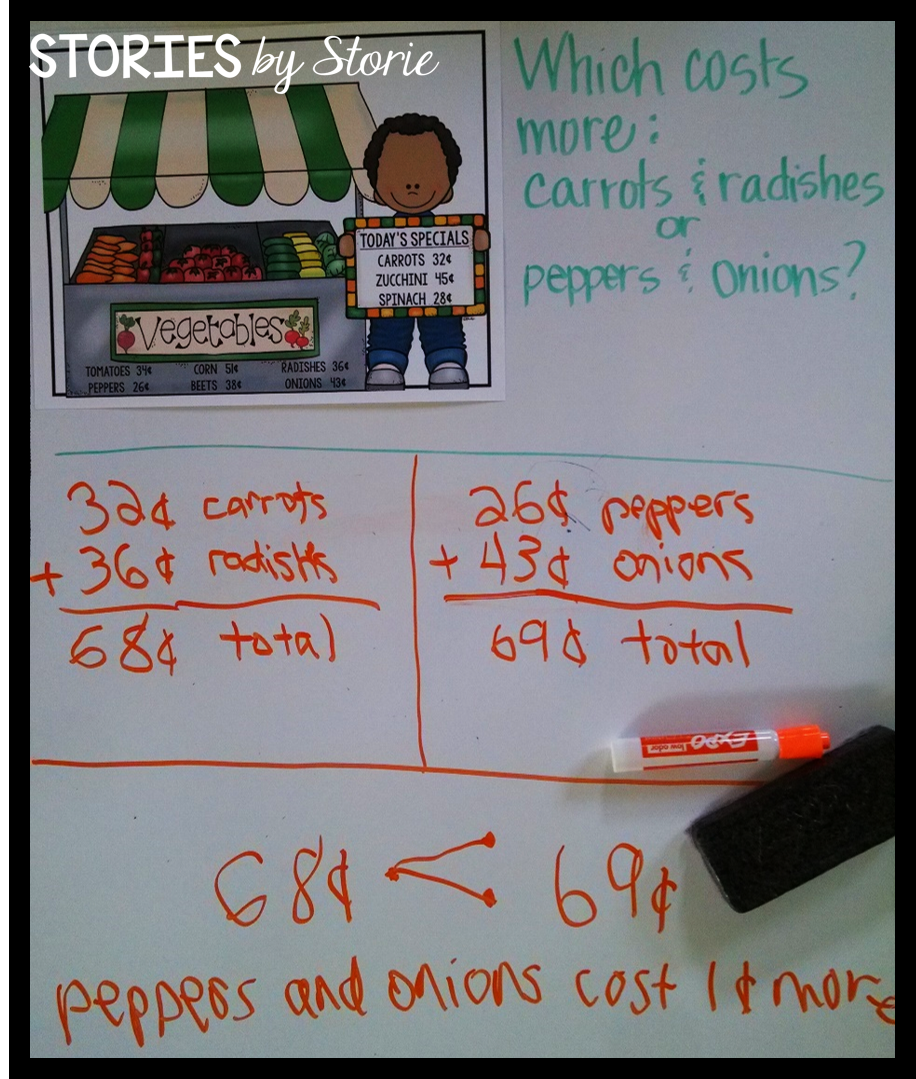 STORIES by Storie
Which costs
more:
carrots & radishes
or
peppers & onions?
TODAY'S SPECIALS
CARROTS 32¢
ZUCCHINI 45¢
SPINACH 28¢
Vegetables
TOMATOES 34¢ CORN 51¢ RADISHES 36¢
PEPPERS 26¢ BEETS 38¢ ONIONS 43¢
32¢ carrots
+ 36¢
68¢ total
26¢ peppers
+ 43¢ onions
69¢ total
EXPO
low odor
68¢ < 69¢
peppers and onions cost 1¢ more